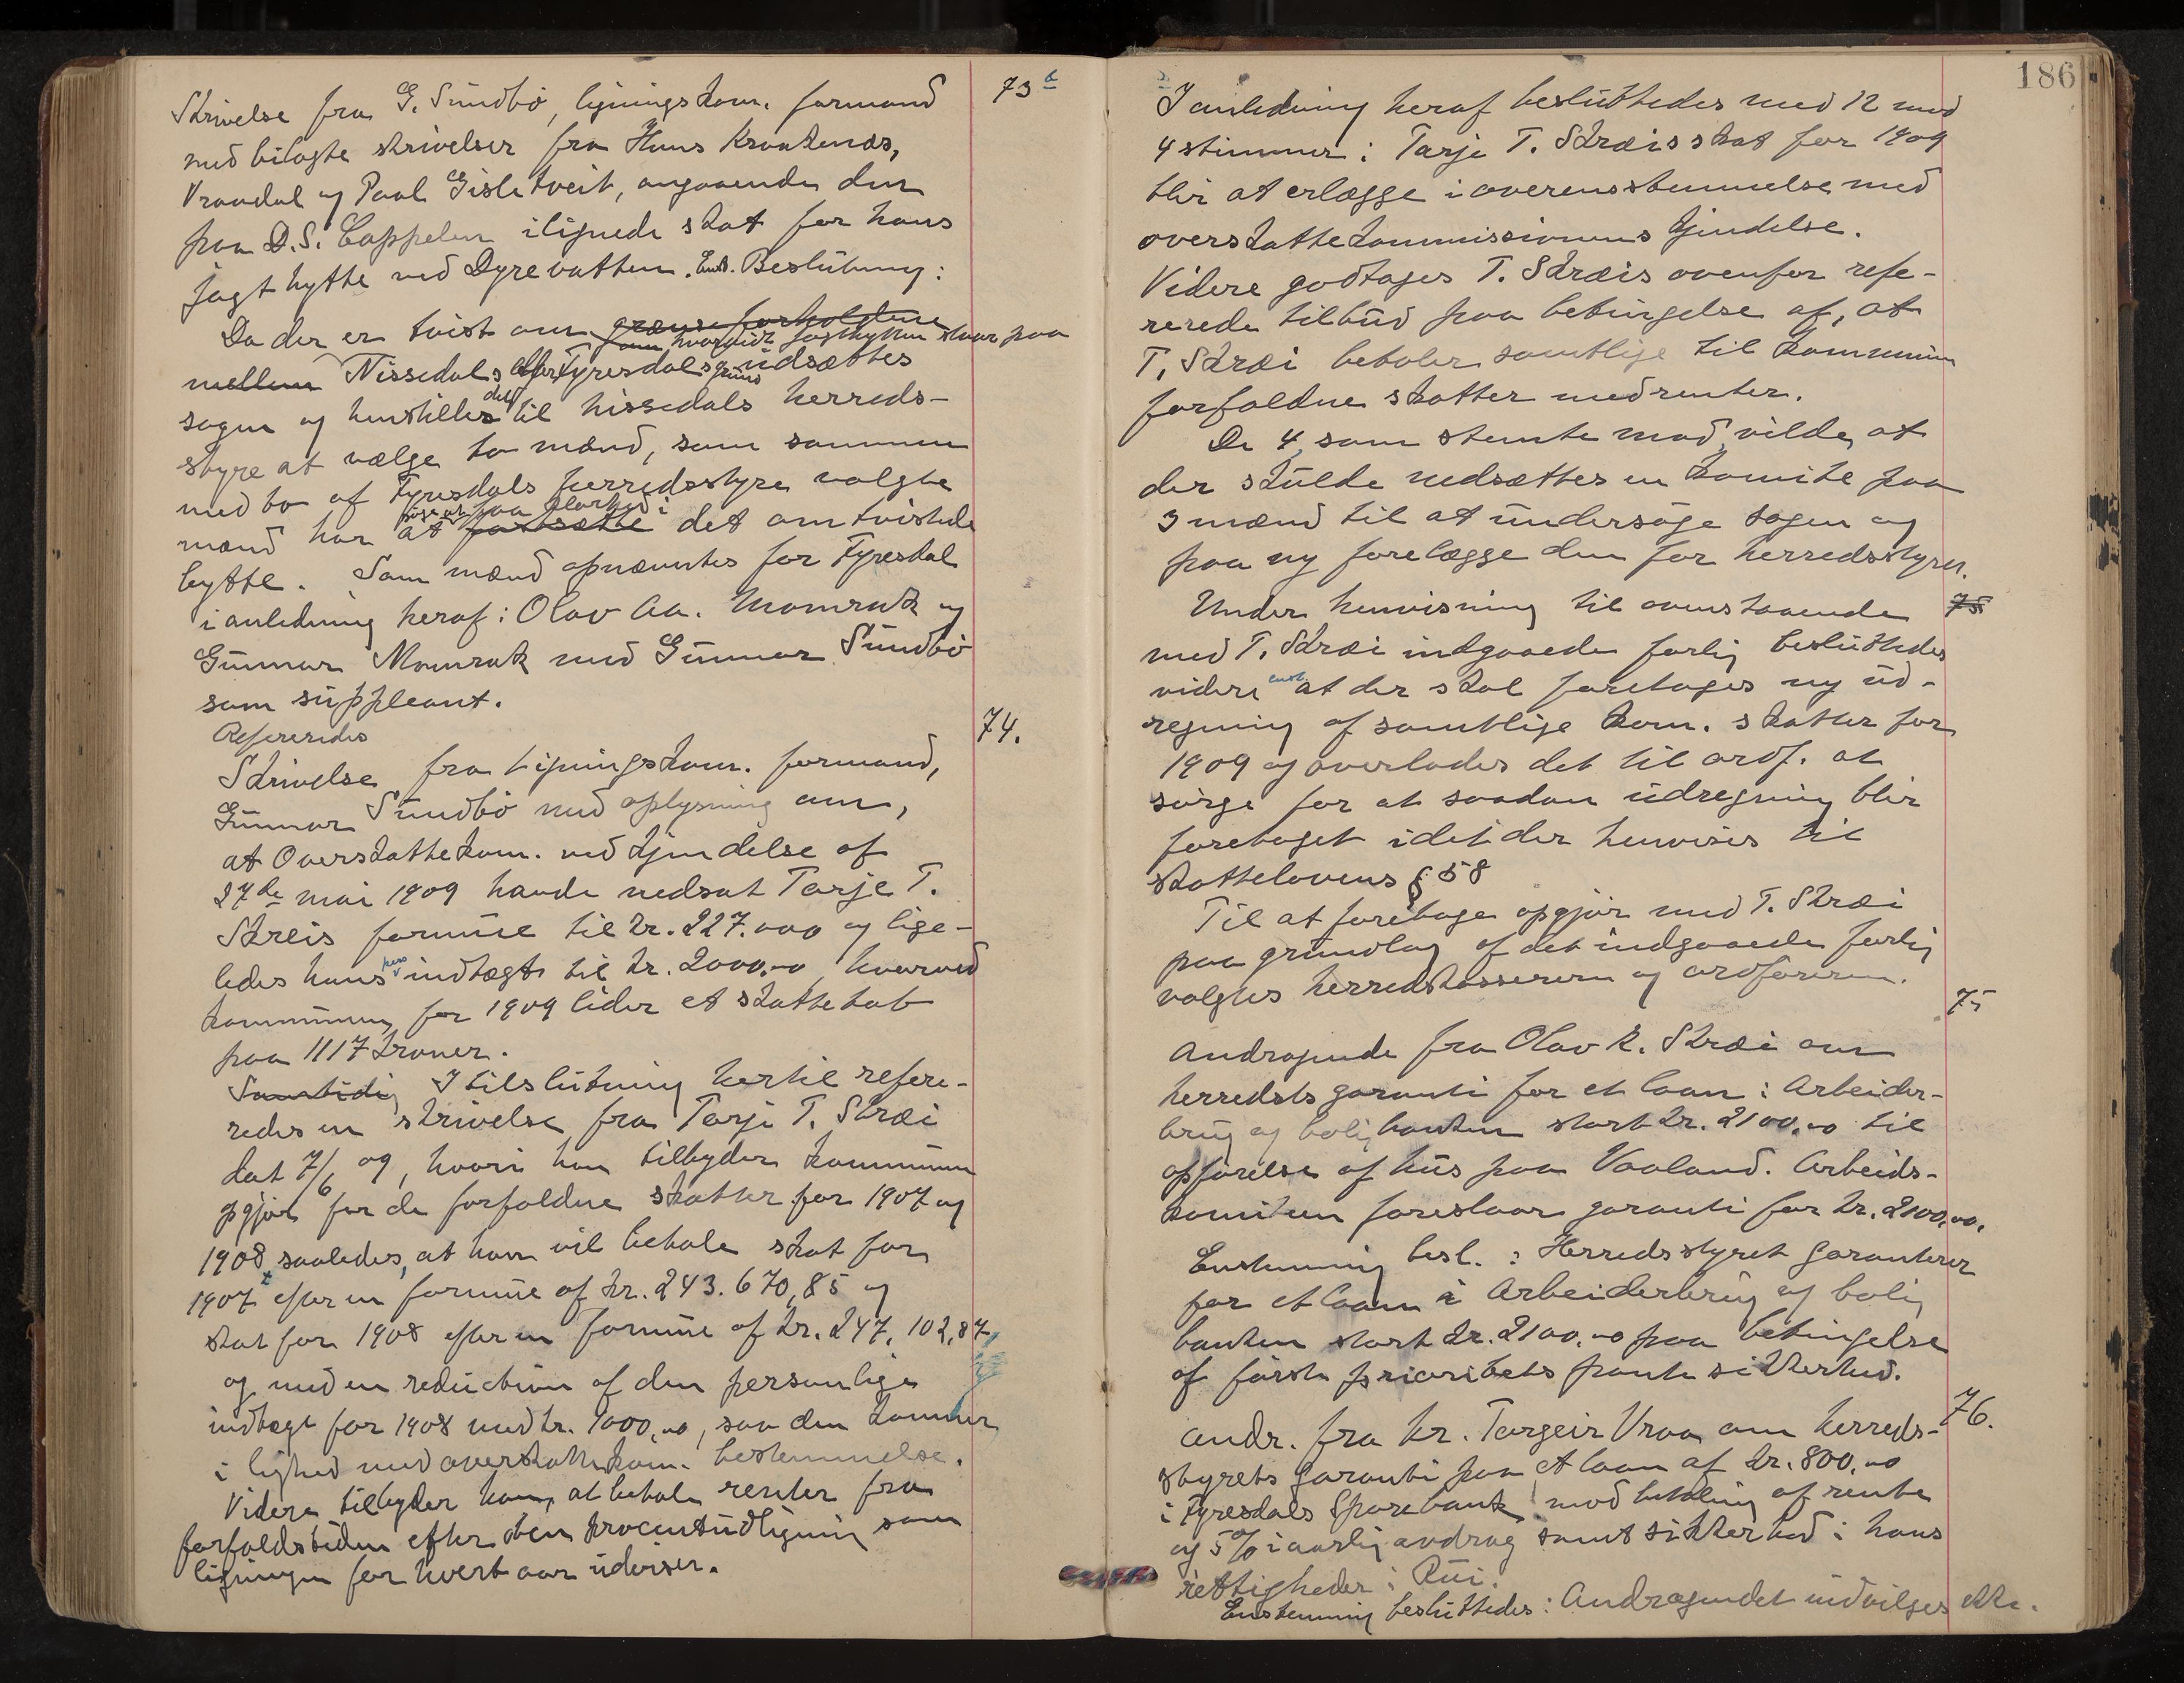 73b
Skrivelse fra G. Sundbö, ligningskom. formand
med bilagte skrivelser fra Hans Kraakenæs,
Vraadal og Paal Gisletveit, angaaende den
paa D. S. Cappelen ilignede skat for hans
jagthytte ved Dyrevatten. Enst. Beslutning:
Da der er tvist om grænseforholdene
om hvorvidt jagthytten staar paa
mellem Nissedals eller Fyresdals grund udsættes
sagen og henstilles det til Nissedals herreds-
styre at vælge to mænd, som sammen
med to af Fyresdals herredsstyre valgte
mænd har at fastsætte det omtvistede
søge at faa klarhed i
bytte. Som mænd opnævntes for Fyresdal
i anledning heraf: Olav Aa. Momrak og
Gunnar Momrak med Gunnar Sundbö
som suppleant.
74.
Refereredes
Skrivelse fra ligningskom. formand,
Gunnar Sundbö med oplysning om,
at Overskattekom. ved kjendelse af
27de mai 1909 havde nedsat Tarje T.
Skreis formue til kr. 227.000 og lige-
ledes hans pers indtægt til kr. 2000,00, hvorved
kommunen for 1909 lider et skattetab
paa 1117 kroner.
Samtidig I tilslutning hertil refere-
redes en skrivelse fra Tarje T. Skræi
dat 7/6 09, hvori han tilbyder kommunen
opgjør for de forfaldne skatter for 1907 og
1908 saaledes, at han vil betale skat for
1907 efter en formue af kr. 243.670,85 og
skat for 1908 efter en formue af kr. 247.102,87,
og med en reduction af den personlige
indtægt for 1908 med kr. 1000,00, saa den kommer
i lighed med overskattekom. bestemmelse.
Videre tilbyder han, at betale renter fra
forfaldstiden efter den procentudligning som
ligningen for hvert aar udviser.
186
I anledning heraf besluttedes med 12 mod
4 stimmer: Tarje T. Skræis skat for 1909
blir at erlægge i overensstemmelse med
overskattekommissionens kjendelse.
Videre godtages T. Skræis ovenfor refe-
rerede tilbud paa betingelse af, at
T. Skræi betaler samtlige til kommunen
forfaldne skatter med renter.
De 4 som stemte mod, vilde, at
der skulde nedsættes en komite paa
3 mænd til at undersøge sagen og
paa ny forelægge den for herredsstyret.
75
Under henvisning til ovenstaaende
med T. Skræi indgaaede forlig besluttedes
videre enst. at der skal foretages ny ud-
regning af samtlige kom. skatter for
1909 og overlades det til ordf. at
sørge for at saadan udregning blir
foretaget idet der henvises til
skattelovens § 58
Til at foretage opgjør med T. Skræi
paa grundlag af det indgaaede forlig
valgtes herredskassereren og ordføreren.
75
Andragende fra Olav K. Skræi om
herredets garanti for et laan i Arbeider-
brug og boligbanken stort kr. 2100,00 til
opførelse af hus paa Vaaland. Arbeids-
komiteen foreslaar garanti for kr. 2100,00.
Enstemmig besl.: Herredsstyret garanterer
for et laan i Arbeiderbrug og bolig
banken stort kr. 2100,00 paa betingelse
af første prioritets pante sikkerhed.
76.
Andr. fra hr. Torgeir Vraa om herreds-
styrets garanti paa et laan af kr. 800,00
i Fyresdals Sparebank mod betaling af rente
og 5% i aarlig avdrag samt sikkerhed i hans
rettigheder i Rui.
Enstemmig besluttedes: Andragendet indvilges ikke.